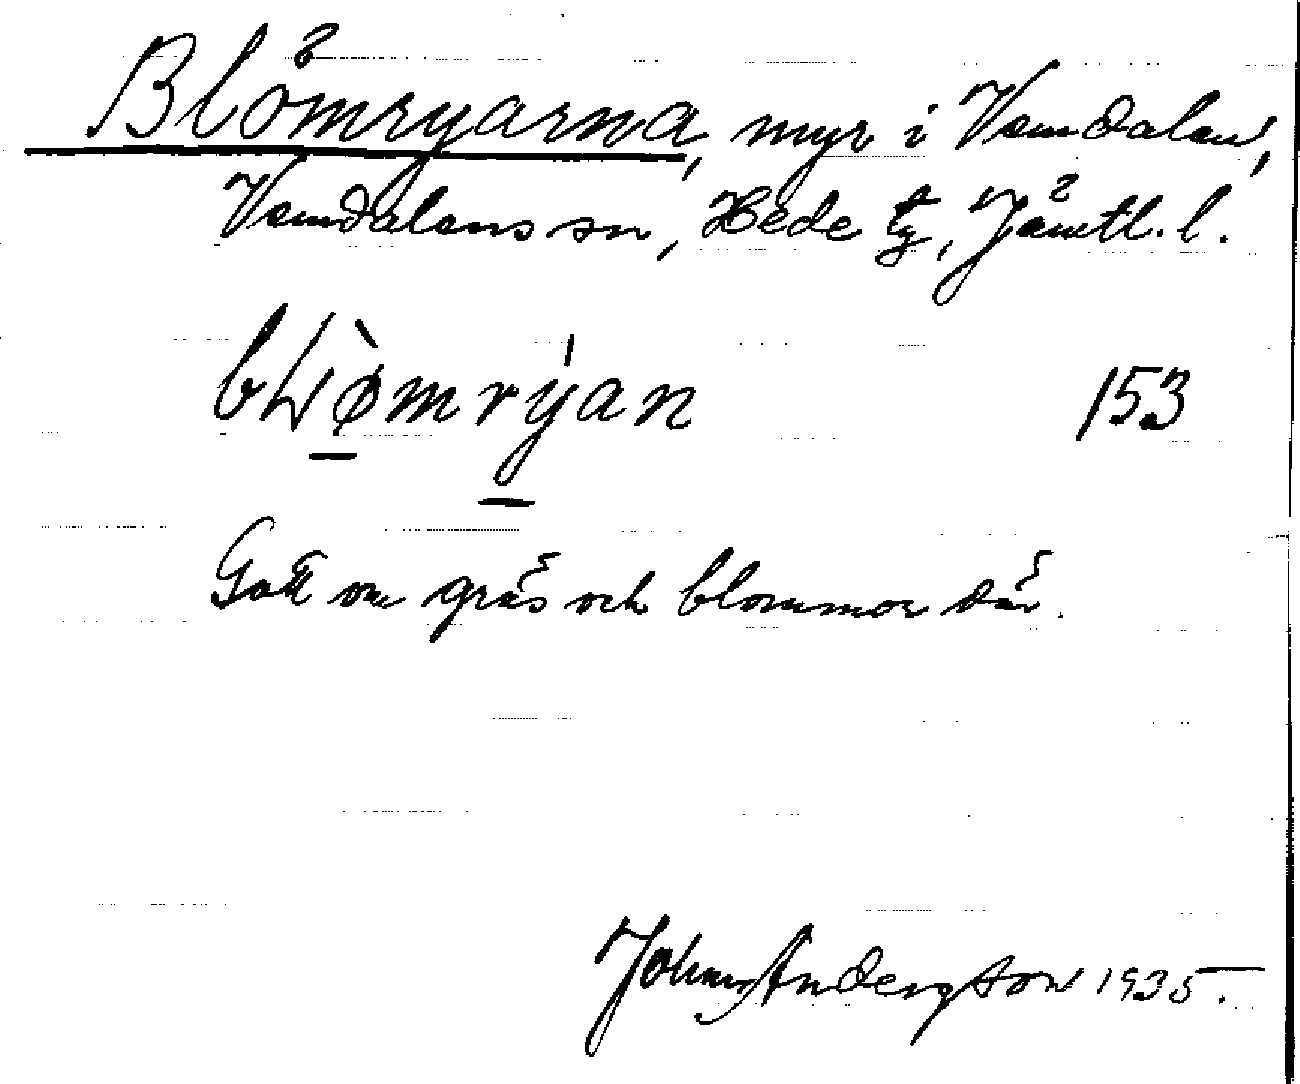 Blömryarna, myr i Vemdalen,
Vemdalens sn, Hede tg, Jämtl. l.
153
Gott om gräs och blommor där.
Johan Anderson 1935.